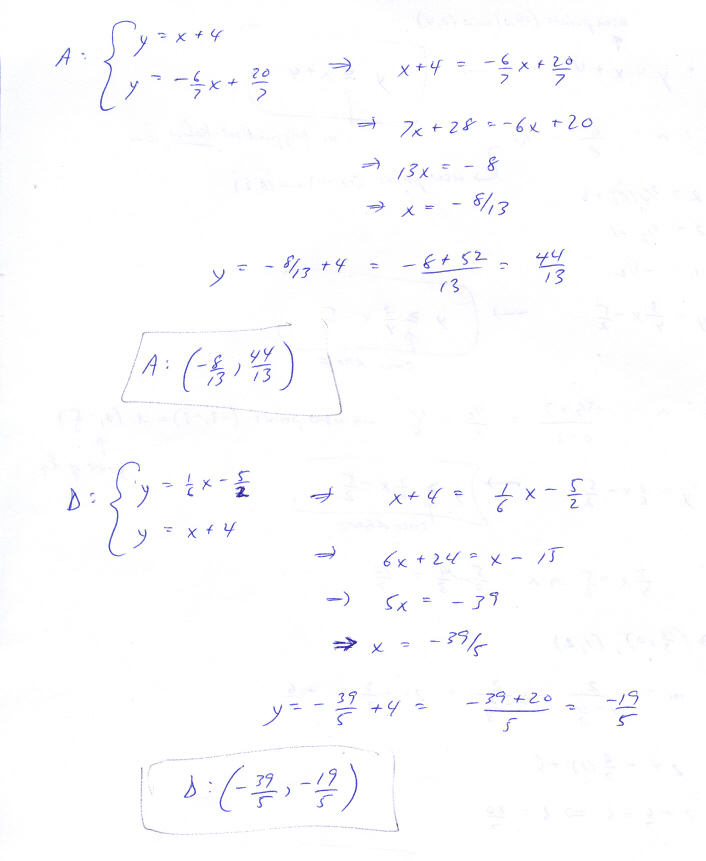 A: { y = x + 4
y = -6/7 x + 20/7 ⇒ x + 4 = -6/7 x + 20/7
⇒ 7x + 28 = -6x + 20
⇒ 13x = -8
⇒ x = -8/13
y = -8/13 + 4 = (-8 + 52)/13 = 44/13
A: (-8/13, 44/13)
D: { y = 1/6 x - 5/2 ⇒ x + 4 = 1/6 x - 5/2
y = x + 4
⇒ 6x + 24 = x - 15
⇒ 5x = -39
⇒ x = -39/5
y = -39/5 + 4 = (-39 + 20)/5 = -19/5
D: (-39/5, -19/5)